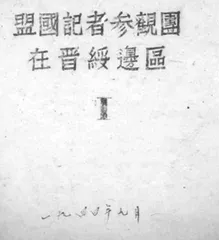 盟國記者參觀團
在晋綏邊區
I
一九四四年九月